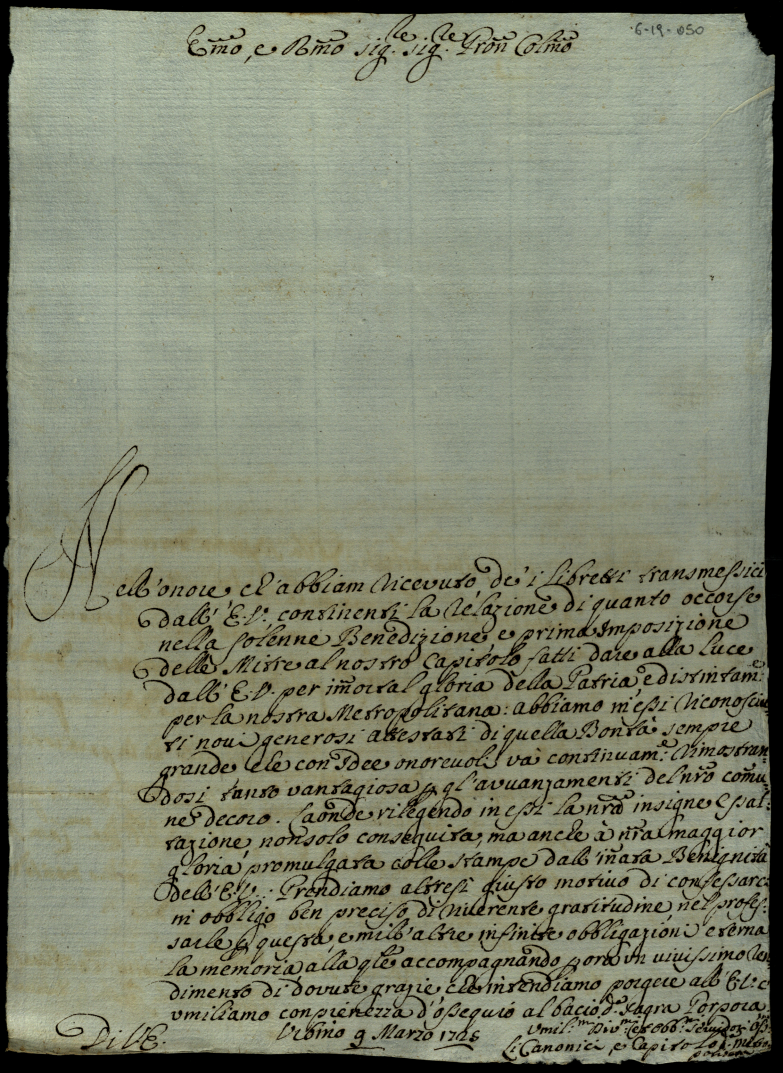 6-19-050
Em̃o, e Rm̃o Sig.re Sig.re Pron̄ Colm̃o
Nell'onore ch'abbiam ricevuto de' i Libretti transmessici
dall'E.V. continenti la relazione di quanto occorse
nella solenne Benedizione e prima Imposizione
delle Mitre al nostro Capitolo fatti dare alla Luce
dall'E.V. per im̃ortal gloria della Patria e distintam.e
per la nostra Metropolitana: abbiamo in essi riconosciu=
ti novi generosi attestati di quella Bontà sempre
grande che con Idee onorevoli và continuam.e rimostran=
dosi tanto vantagiosa p gl'avuanzamenti del nr̃o comu=
ne decoro. Laonde rilegendo in essi la nr̃a insigne essal=
tazione non solo conseguita, ma anche à nr̃a maggior
gloria promulgata colle stampe dall'in̄ata Benignità
dell'E.V.: Prendiamo altresì giusto motivo di confessarci
in obbligo ben preciso di riverente gratitudine nel profes=
sarle p questa e mill'altre infinite obbligazioni eterna
la memoria alla qle accompagnando p ora un vivissimo ren=
dimento di dovute grazie che intendiamo porgere all'E.V. c'
umiliamo con pienezza d'ossequio al bacio d.a Sagra Porpora
Di V.E. Urbino 9 Marzo 1725
Umil.mi Div.mi
Li Canonici, e Capitolo